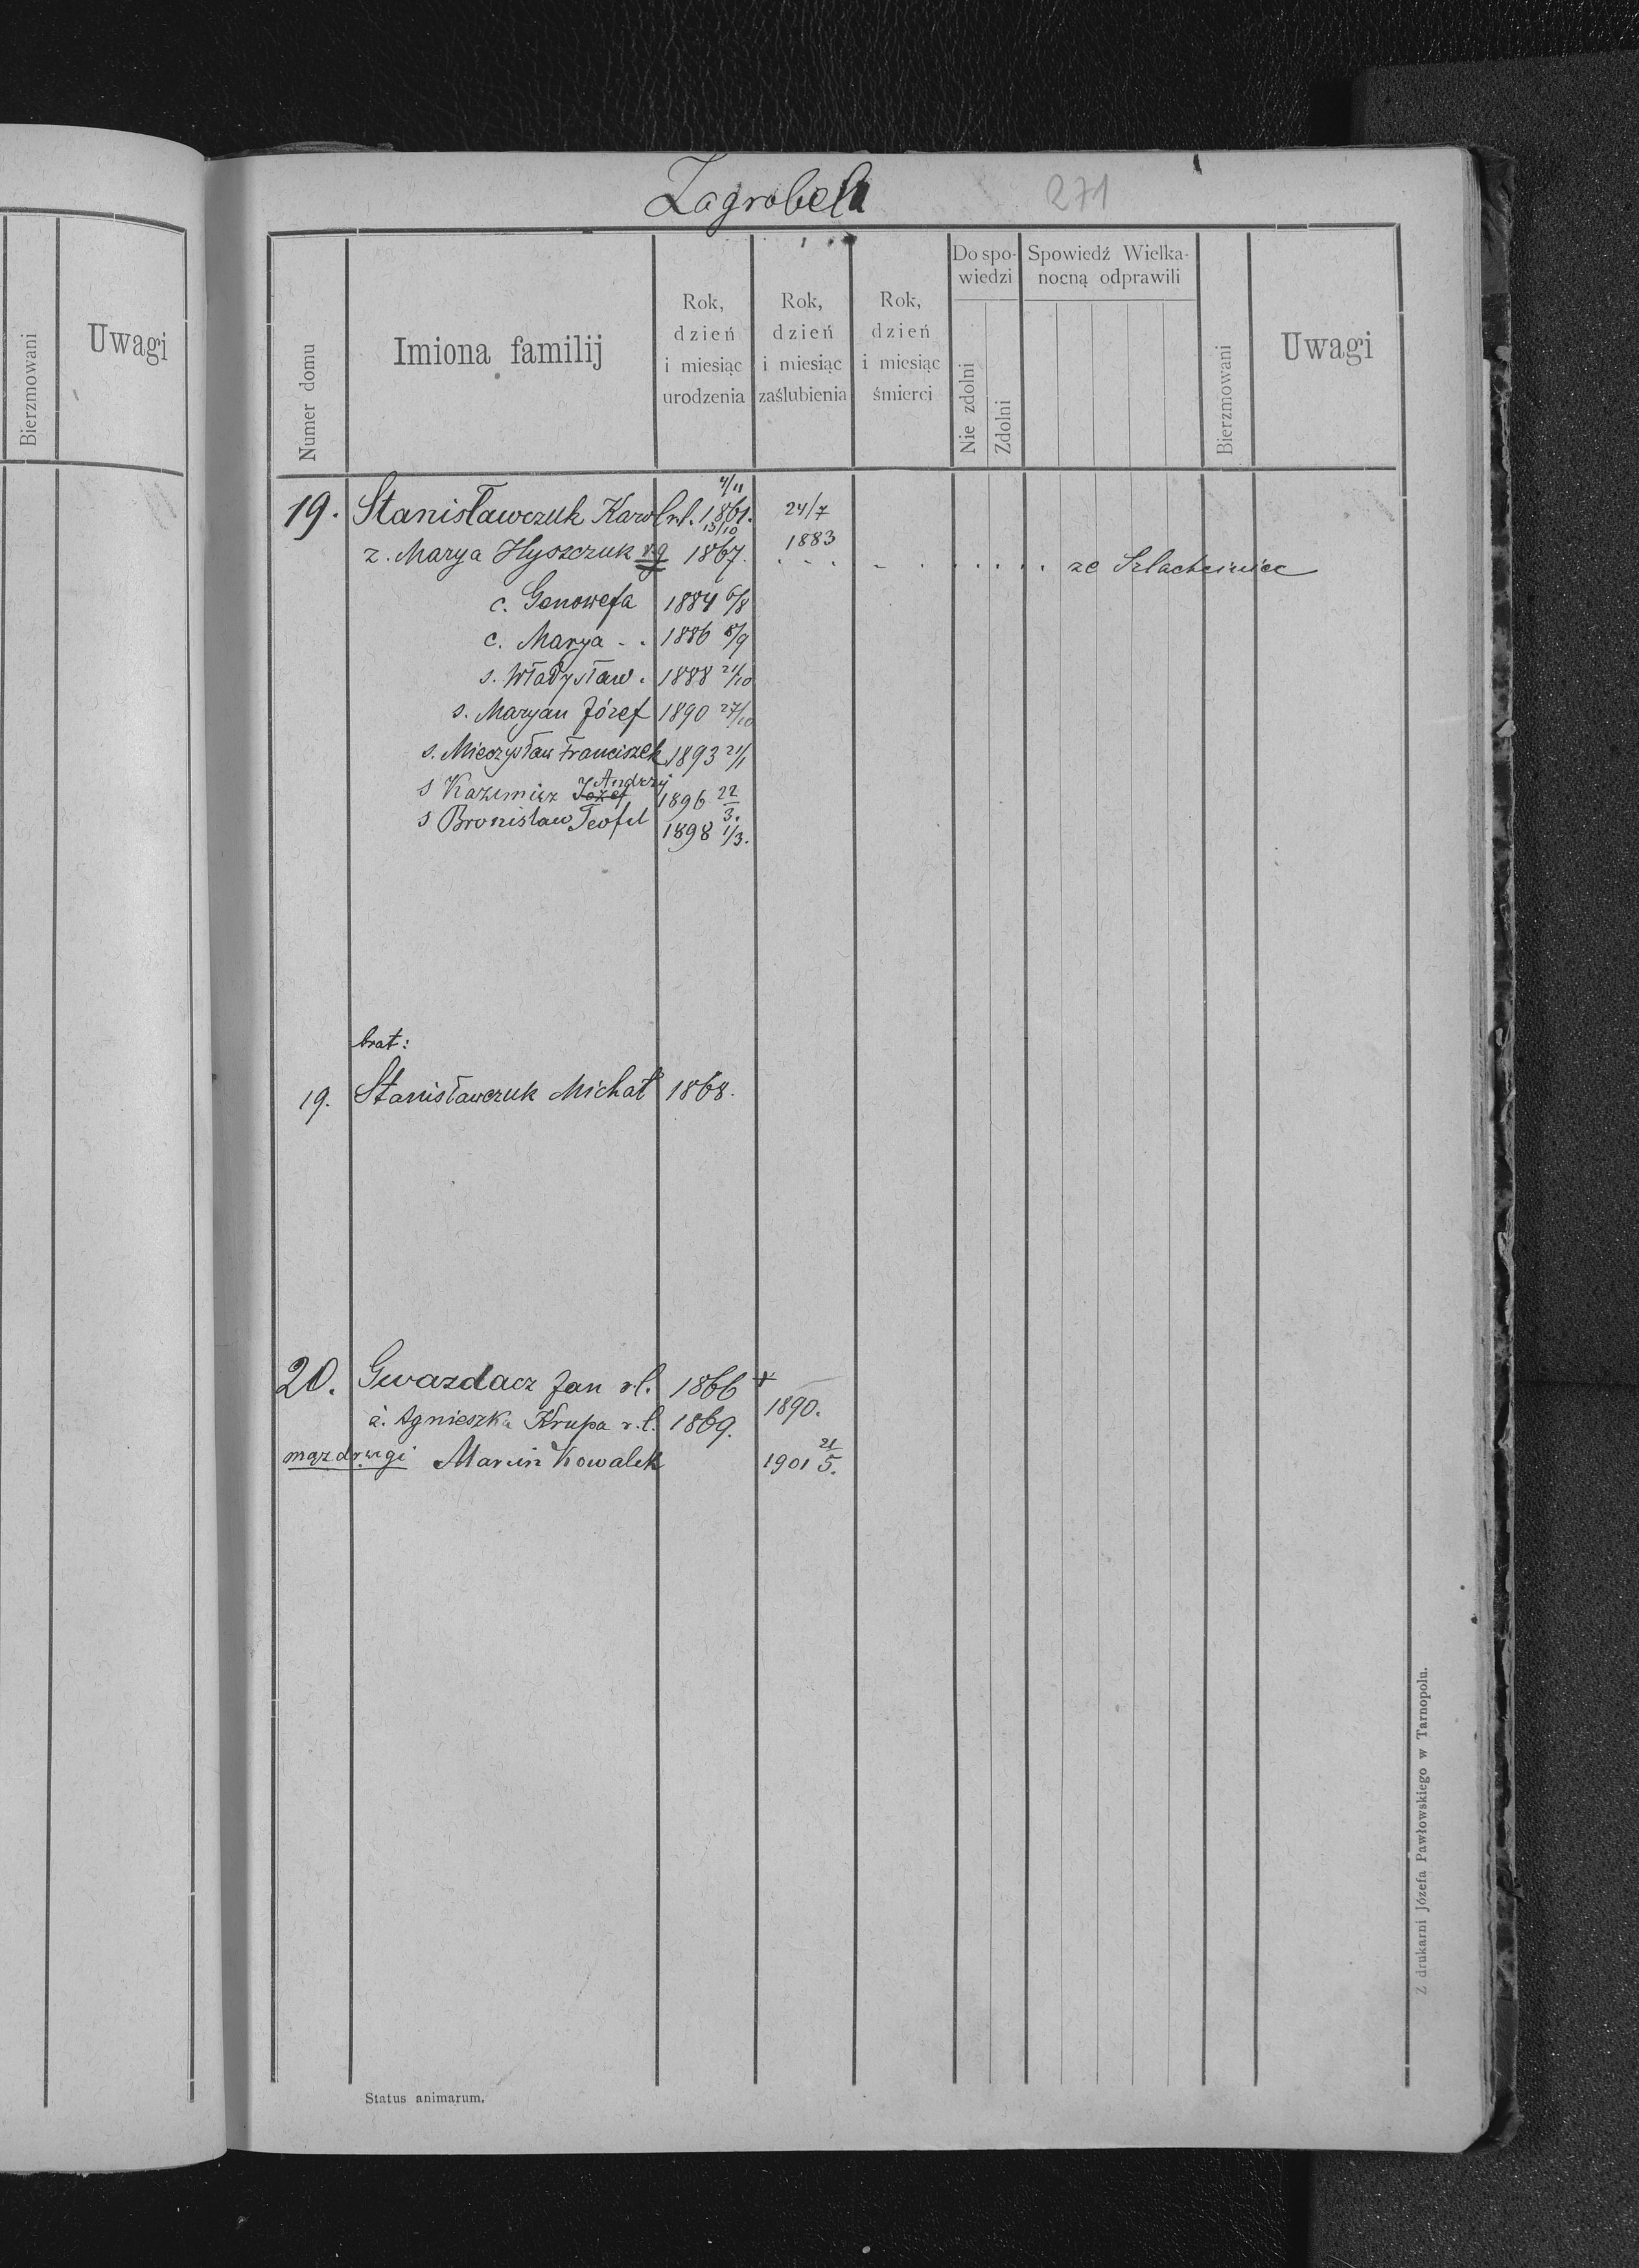 Zagrobela 271
Bierzmowani
Uwagi
Numer domu
Imiona familij
Rok, dzień i miesiąc urodzenia
Rok, dzień i miesiąc zaślubienia
Rok, dzień i miesiąc śmierci
Do spowiedzi
Nie zdolni
Zdolni
Spowiedź Wielkanocną odprawili
Bierzmowani
Uwagi
19. Stanisławczuk Karol r.l. 4/11 1861. 24/7
z. Marya Hyszczuk r.g 13/10 1867. 1883 . . . . . . . . . . ze Szlachciniec
c. Genowefa 1884 6/8
c. Marya - . 1886 8/9
s. Władysław . 1888 21/10
s. Maryan Józef 1890 27/10
s. Mieczysław Franciszek 1893 21/1
s Kazimierz Józef Andrzej 1896 22/3.
s Bronisław Teofil 1898 1/3.
brat:
19. Stanisławczuk Michał 1868.
20. Gwazdacz Jan r.l. 1866 +
ż. Agnieszka Krupa r.l. 1869. 1890.
mąż drugi Marcin Kowalek 1901 21/5.
Status animarum.
Z drukarni Józefa Pawłowskiego w Tarnopolu.